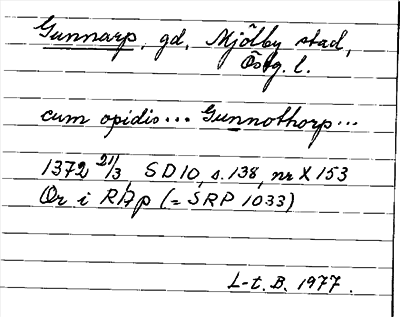 Gunnarp, gd, Mjölby stad,
Östg. l.
cum opidis... Gunnothorp...
1372 21/3, SD10, s. 138, nr X 153
Or i RAp (= SRP 1033)
L-t. B. 1977.